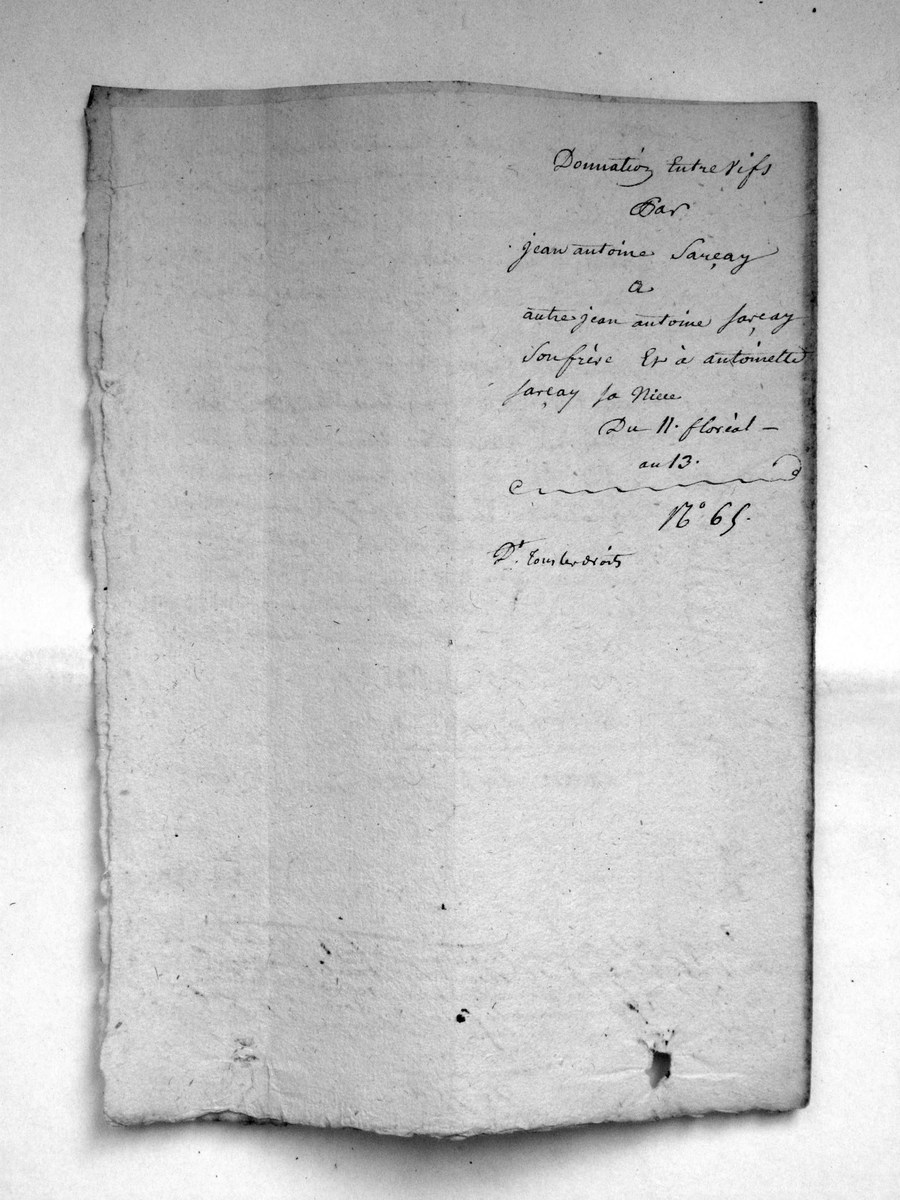 Donnation Entre Vifs
Par
jean antoine Sarçay
A
autre jean antoine sarçay
Son frère Et à antoinette
sarçay sa Niece
Du 11. floréal -
an 13.
N.° 65.
D.t tous les droits